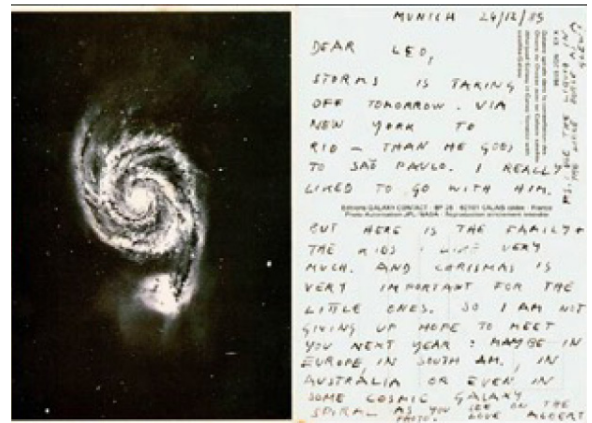 MUNICH 24/12/89
DEAR LEO,
STORMS IS TAKING
OFF TOMORROW. VIA
NEW YORK TO
RIO — THAN HE GOES
TO SAÕ PAULO. I REALLY
LIKED TO GO WITH HIM.
Editions GALAXY CONTACT - BP 26 - 62101 CALAIS cédex - France
Photo Automation JPL/NASA - Reproduction strictement interdite
BUT HERE IS THE FAMILY +
THE KIDS I LIKE VERY
MUCH. AND CHRISMAS IS
VERY IMPORTANT FOR THE
LITTLE ONES. SO I AM NOT
GIVING UP HOPE TO MEET
YOU NEXT YEAR: MAYBE IN
EUROPE, IN SOUTH AM., IN
AUSTRALIA OR EVEN IN
SOME COSMIC GALAXY
SPIRAL AS YOU SEE ON THE
PHOTO. LOVE ALBERT